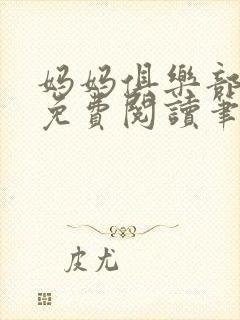 妈妈俱樂部
免費閱讀筆
皮尤